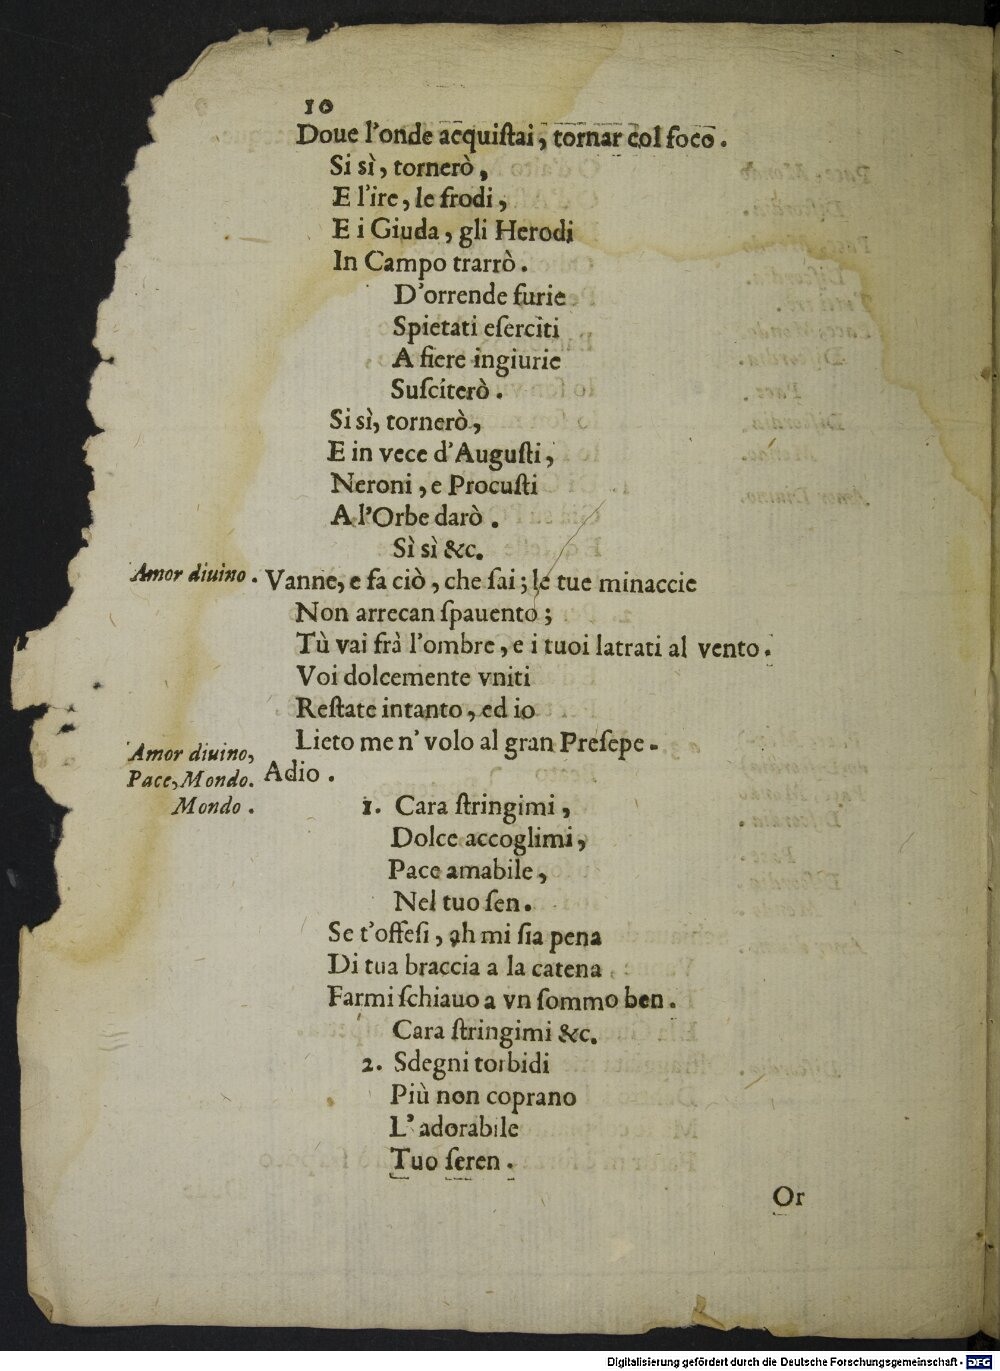 10
Doue l'onde acquiſtai, tornar col foco.
Si sì, tornerò,
E l'ire, le frodi,
E i Giuda, gli Herodi
In Campo trarrò.
D'orrende furie
Spietati eſerciti
A fiere ingiurie
Suſciterò.
Si sì, tornerò,
E in vece d'Auguſti,
Neroni, e Procuſti
A l'Orbe darò.
Sì sì &c.
Amor diuino. Vanne, e fa ciò, che ſai; le tue minaccie
Non arrecan ſpauento;
Tù vai frà l'ombre, e i tuoi latrati al vento.
Voi dolcemente vniti
Reſtate intanto, ed io
Lieto me n' volo al gran Preſepe.
Amor diuino,
Pace, Mondo. Adio.
Mondo. 1. Cara ſtringimi,
Dolce accoglimi,
Pace amabile,
Nel tuo ſen.
Se t'offeſi, ah mi ſia pena
Di tua braccia a la catena
Farmi ſchiauo a vn ſommo ben.
Cara ſtringimi &c.
2. Sdegni torbidi
Più non coprano
L' adorabile
Tuo ſeren.
Or
Digitalisierung gefördert durch die Deutsche Forschungsgemeinschaft - DFG